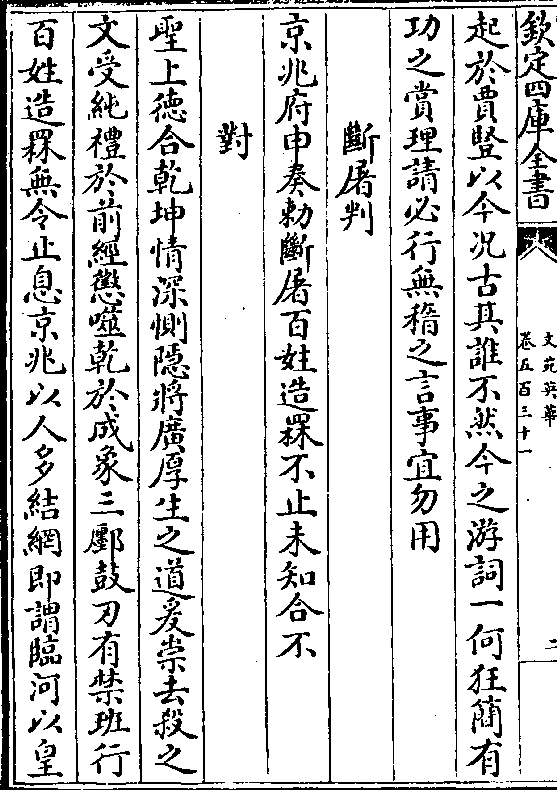 欽定四庫全書
文苑英華
卷五百三十一
二
起於賈豎以今况古其誰不然今之游詞一何狂簡有
功之賞理請必行無稽之言事宜勿用
斷屠判
京兆府申奏勅斷屠百姓造罧不止未知合不
對
聖上德合乾坤情深惻隱將廣厚生之道爰崇去殺之
文受純禮於前經懲噬乾於成象三鄽鼓刀有禁班行
百姓造罧無令止息京兆以人多結網即謂臨河以皇